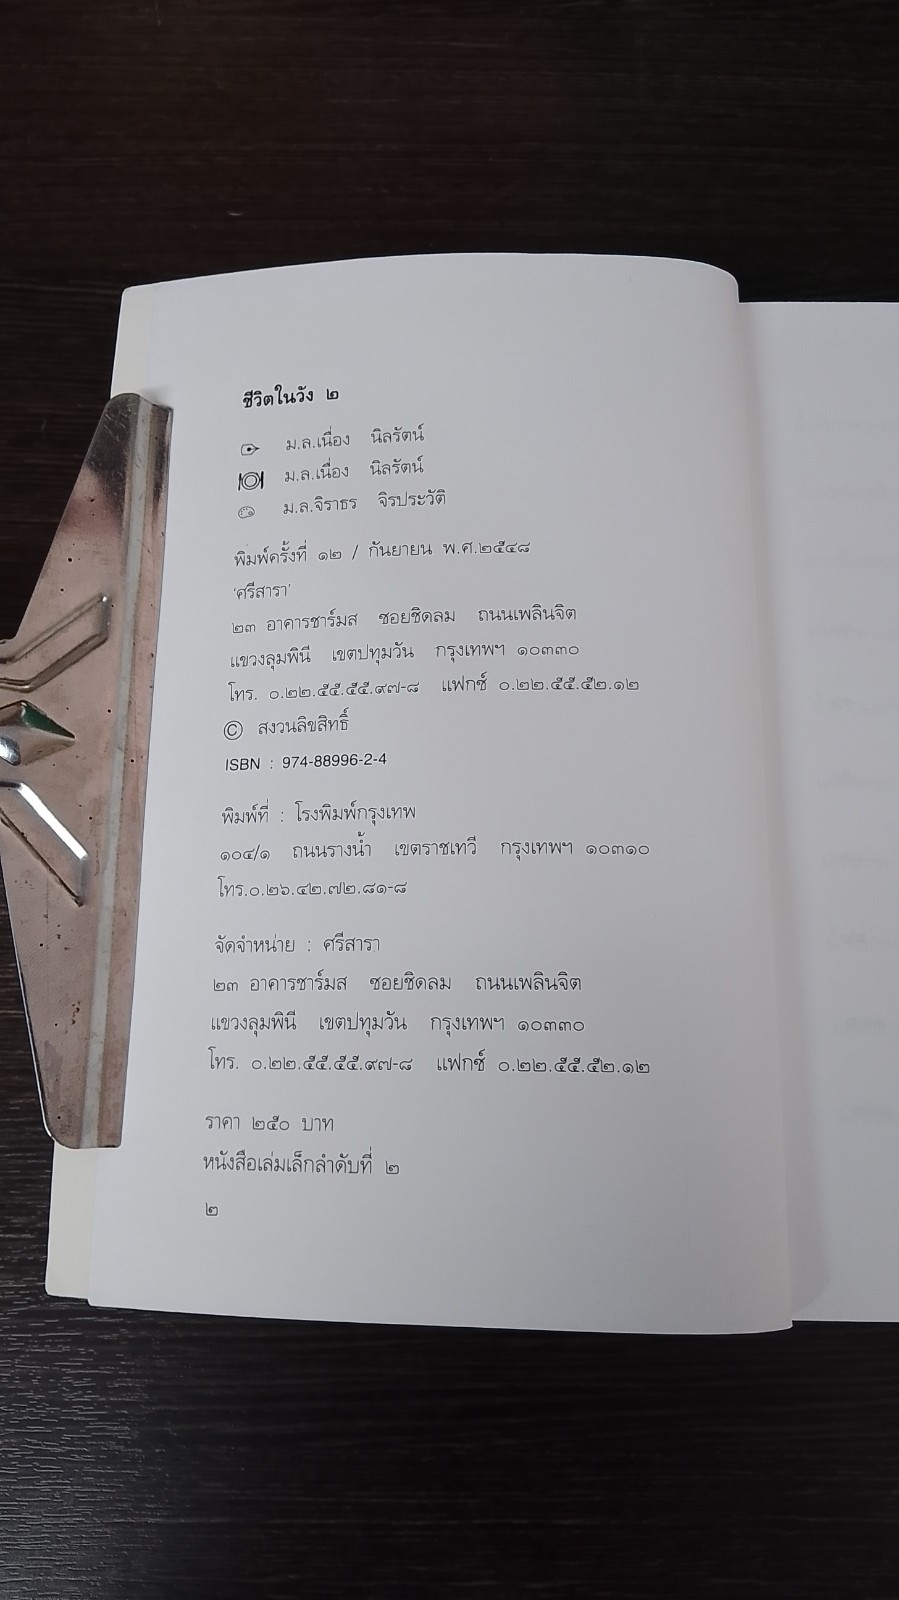 ชีวิตในวัง ๒
ม.ล.เนื่อง นิลรัตน์
ม.ล.เนื่อง นิลรัตน์
ม.ล.จิราธร จิรประวัติ
พิมพ์ครั้งที่ ๑๒ / กันยายน พ.ศ.๒๕๔๘
'ศรีสารา'
๒๓ อาคารชาร์มส ซอยชิดลม ถนนเพลินจิต
แขวงลุมพินี เขตปทุมวัน กรุงเทพฯ ๑๐๓๓๐
โทร. ๐.๒๒.๕๕.๕๕.๙๗-๘ แฟกซ์ ๐.๒๒.๕๕.๕๒.๑๒
© สงวนลิขสิทธิ์
ISBN : 974-88996-2-4
พิมพ์ที่ : โรงพิมพ์กรุงเทพ
๑๐๔/๑ ถนนรางน้ำ เขตราชเทวี กรุงเทพฯ ๑๐๓๑๐
โทร.๐.๒๖.๔๒.๗๒.๘๑-๘
จัดจำหน่าย : ศรีสารา
๒๓ อาคารชาร์มส ซอยชิดลม ถนนเพลินจิต
แขวงลุมพินี เขตปทุมวัน กรุงเทพฯ ๑๐๓๓๐
โทร. ๐.๒๒.๕๕.๕๕.๙๗-๘ แฟกซ์ ๐.๒๒.๕๕.๕๒.๑๒
ราคา ๒๕๐ บาท
หนังสือเล่มเล็กลำดับที่ ๒
๒